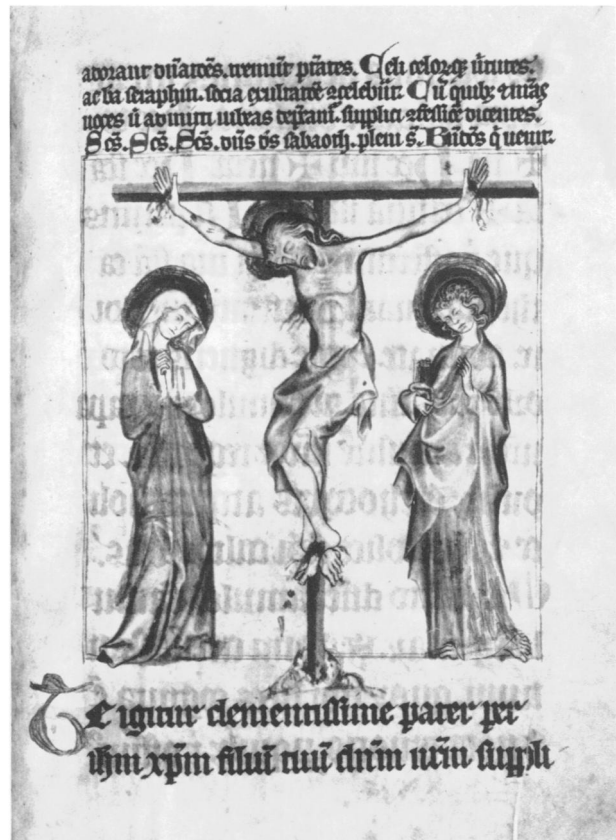 adorant dn̄atōes. tremūt ptātes. Celi celorqꝫ v̄tutes.
ac bā seraphin. socia exultatōe ↄcelebrāt. Cū quibꝫ ⁊ nr̄as
uoces ut admitti iubeas dep̄cam̄. supplici ↄfessiōe dicentes.
Sc̄s. Sc̄s. Sc̄s. dn̄s ds̄ sabaoth. pleni s̄. Bn̄dc̄s q̄ uenit.
Te igitur clementissime pater per
ihm xp̄m filiū tuū dn̄m nr̄m suppli